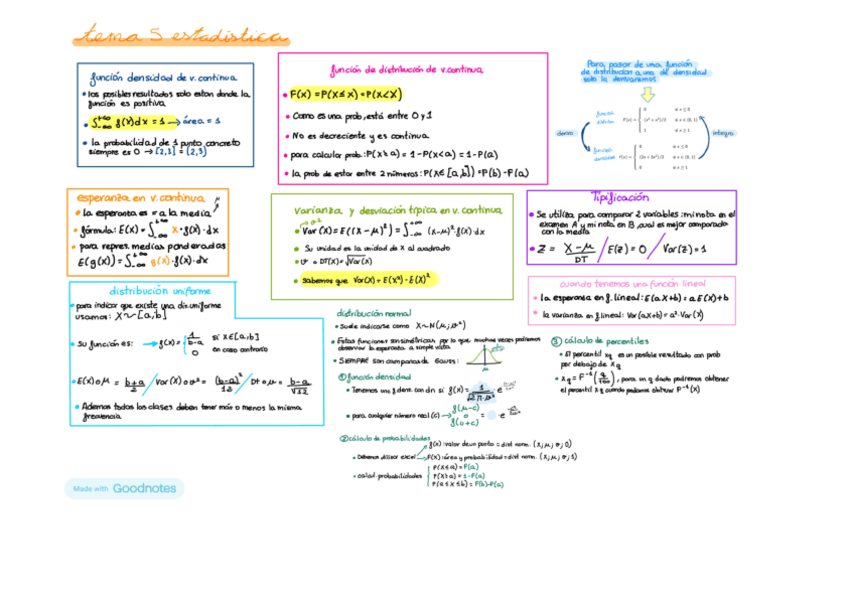 tema 5 estadística
función densidad de v.continua
• los posibles resultados solo estan donde la
función es positiva
• ∫-∞+∞ f(x)dx = 1 → área = 1
• la probabilidad de 1 punto concreto
siempre es 0 → [2,3] = (2,3)
función de distribución de v.continua
• F(x) = P(X≤x) = P(X<x)
• Como es una prob, está entre 0 y 1
• No es decreciente y es continua
• para calcular prob: P(X≥a) = 1-P(X<a) = 1-P(a)
• la prob de estar entre 2 números: P(X∈[a,b]) = P(b)-P(a)
Para pasar de una función
de distribución a una de densidad
solo la derivaremos
función
deriva
integra
función
densidad
esperanza en v. continua
• la esperanza es = a la media μ
• fórmula: E(X) = ∫-∞+∞ x·f(x)·dx
• para repres. medias ponderadas
E(g(x)) = ∫-∞+∞ g(x)·f(x)·dx
varianza y desviación típica en v. continua
• Var(X) = E((X-μ)²) = ∫-∞+∞ (x-μ)²·f(x)dx
• Su unidad es la unidad de X al cuadrado
• σ = DT(X) = √Var(X)
• Sabemos que Var(X) = E(X²) - E(X)²
Tipificación
• Se utiliza para comparar 2 variables: mi nota en el
examen A y mi nota en B, cual es mejor comparada
con la media
• Z = X-μ / DT / E(z) = 0 / Var(z) = 1
cuando tenemos una función lineal
• la esperanza en f. lineal: E(aX+b) = aE(X)+b
• la varianza en f. lineal: Var(aX+b) = a²·Var(X)
distribución uniforme
• para indicar que existe una dis. uniforme
usamos: X~[a,b]
• Su función es: → f(x) = 1/b-a si X∈[a,b]
0 en caso contrario
• E(X) o μ = b+a/2 / Var(X) o σ² = (b-a)²/12 / DT o μ = b-a/√12
• Ademas todas las clases deben tener más o menos la misma
frecuencia
distribución normal
• Suele indicarse como X~N(μ,σ²)
• Estas funciones son simétricas por lo que muchas veces podremos
observar la esperanza a simple vista
• SIEMPRE son campanas de Gauss:
① función densidad
• Tenemos una f. dem. con dn si f(x) = 1/√2π·σ² · e
• para cualquier número real (c) → f(μ-c)
o
f(u+c)
= · e
② cálculo de probabilidades
f(x): valor de un punto = dist. norm. (x; μ; σ; 0)
• Debemos utilizar excel → F(x): área y probabilidad = dist. norm. (x; μ; σ; 1)
• calcul. probabilidades
P(X≤a) = F(a)
P(X≥a) = 1-F(a)
P(a≤X≤b) = F(b)-F(a)
③ cálculo de percentiles
• El percentil xq es un posible resultado con prob
por debajo de xq
• Xq = F⁻¹(q/100), para un q dado podremos obtener
el percentil xq cuando podamos obtener F⁻¹(x)
Made with Goodnotes